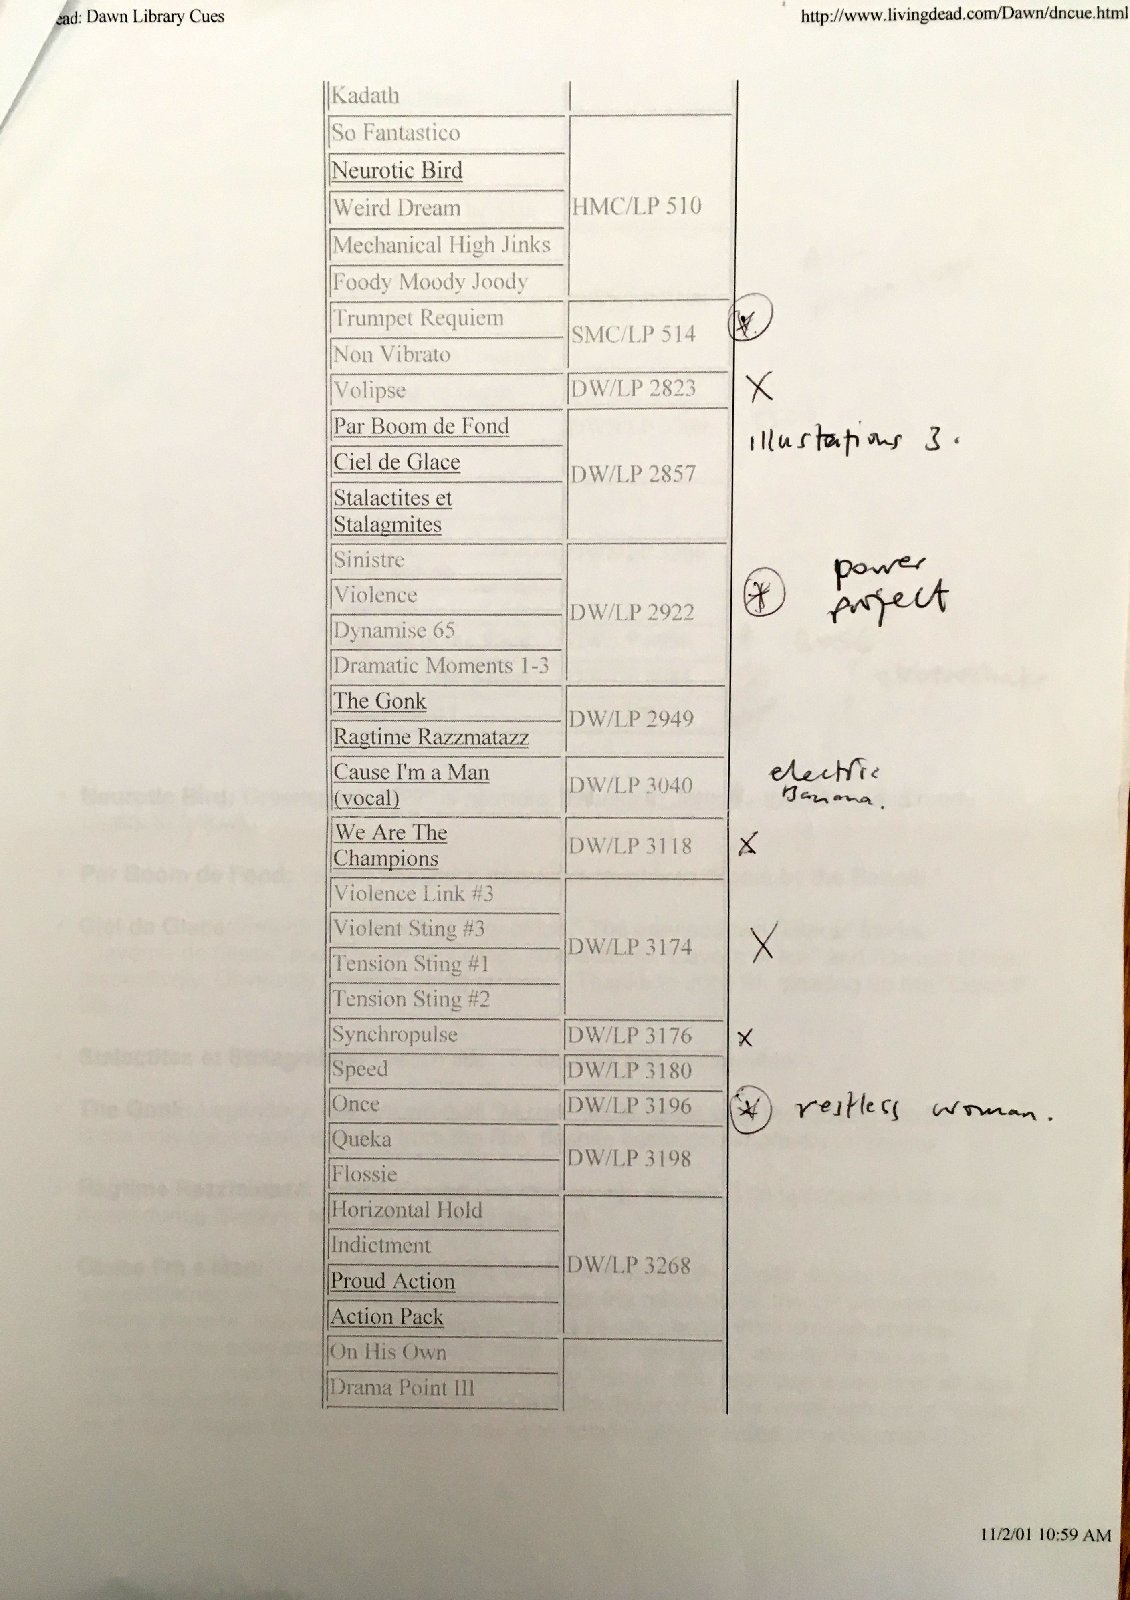 ead: Dawn Library Cues
http://www.livingdead.com/Dawn/dncue.html
Kadath
So Fantastico
Neurotic Bird
Weird Dream
HMC/LP 510
Mechanical High Jinks
Foody Moody Joody
Trumpet Requiem
SMC/LP 514
Non Vibrato
Volipse
DW/LP 2823
X
Par Boom de Fond
illustations 3.
Ciel de Glace
DW/LP 2857
Stalactites et
Stalagmites
Sinistre
power
Violence
project
DW/LP 2922
Dynamise 65
Dramatic Moments 1-3
The Gonk
DW/LP 2949
Ragtime Razzmatazz
Cause I'm a Man
(vocal)
DW/LP 3040
electric
Banana.
We Are The
Champions
DW/LP 3118
X
Violence Link #3
Violent Sting #3
DW/LP 3174
X
Tension Sting #1
Tension Sting #2
Synchropulse
DW/LP 3176
x
Speed
DW/LP 3180
Once
DW/LP 3196
restless woman.
Queka
DW/LP 3198
Flossie
Horizontal Hold
Indictment
DW/LP 3268
Proud Action
Action Pack
On His Own
Drama Point III
11/2/01 10:59 AM